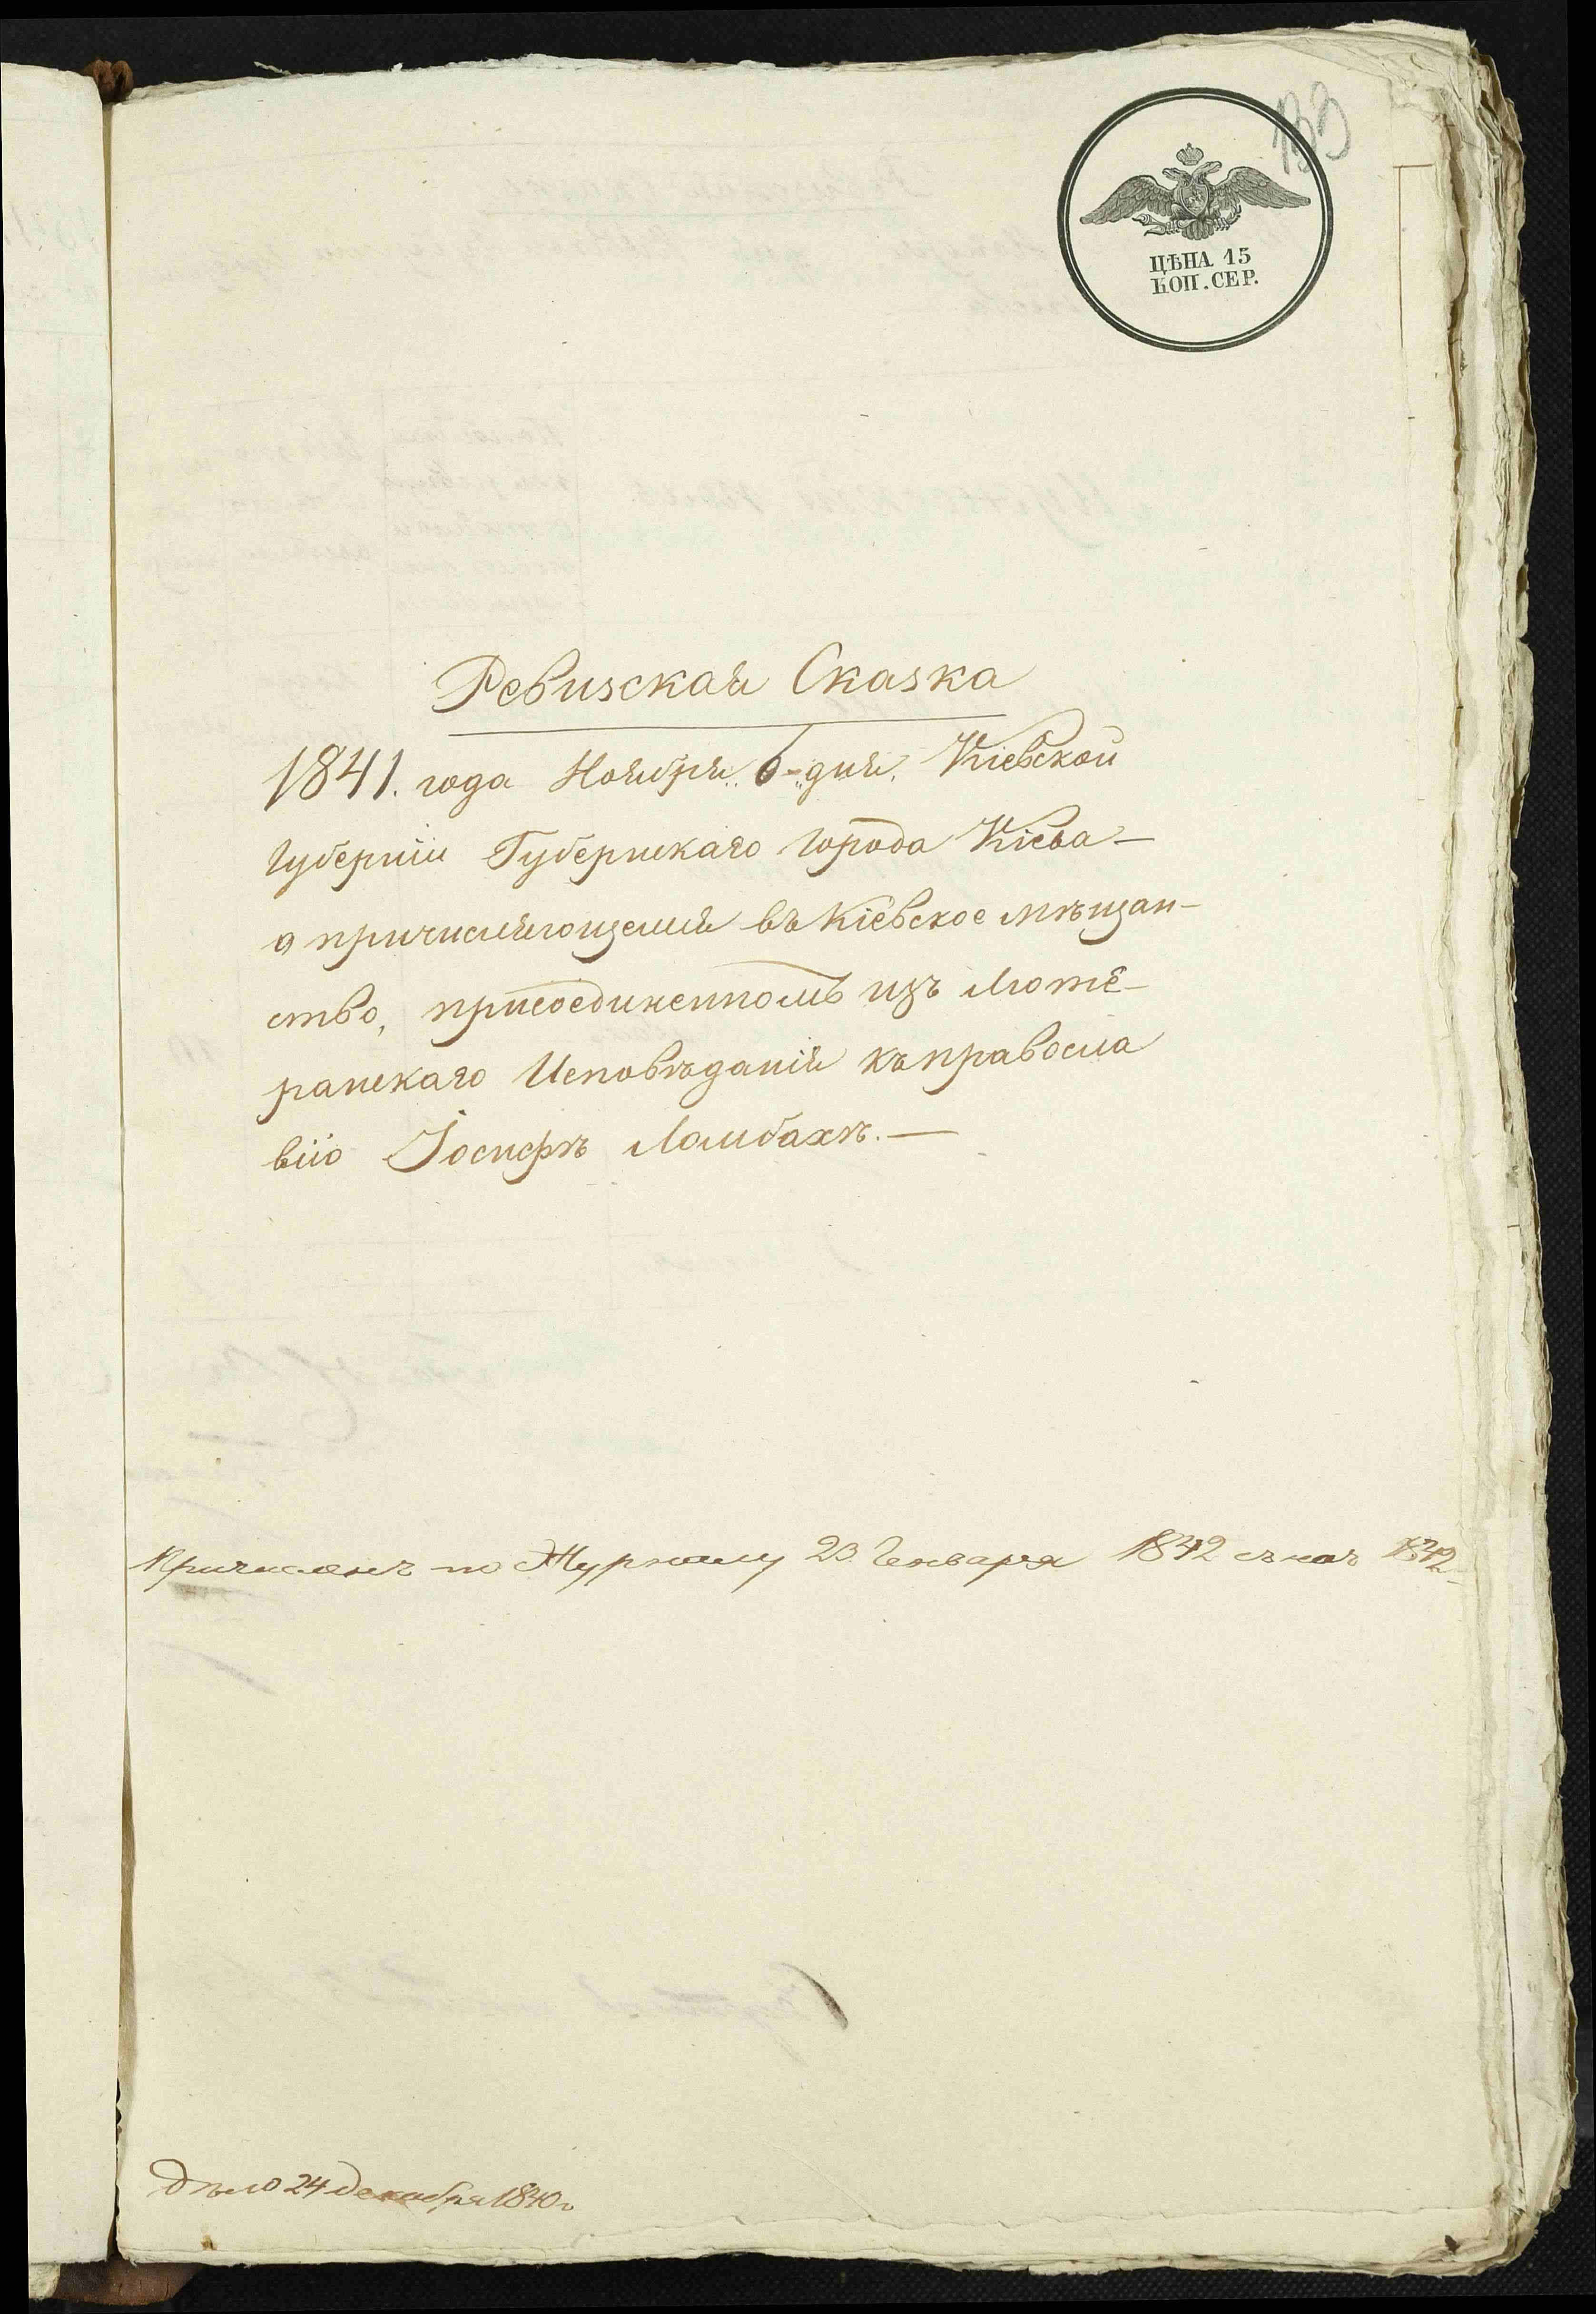 133
ЦѢНА 15
КОП. СЕР.
Ревизская Сказка
1841. года Ноября 6 дня, Кіевской
Губерніи Губернскаго города Кіева —
о причисляющемся въ Кіевское мѣщан-
ство, присоединенномъ изъ Люте-
ранскаго Исповѣданія къ правосла
вію Іосифѣ Ломбахѣ. —
Причисленъ по Журналу 23 Генваря 1842 съ нач 1842
Дѣло 24 декабря 1840 г